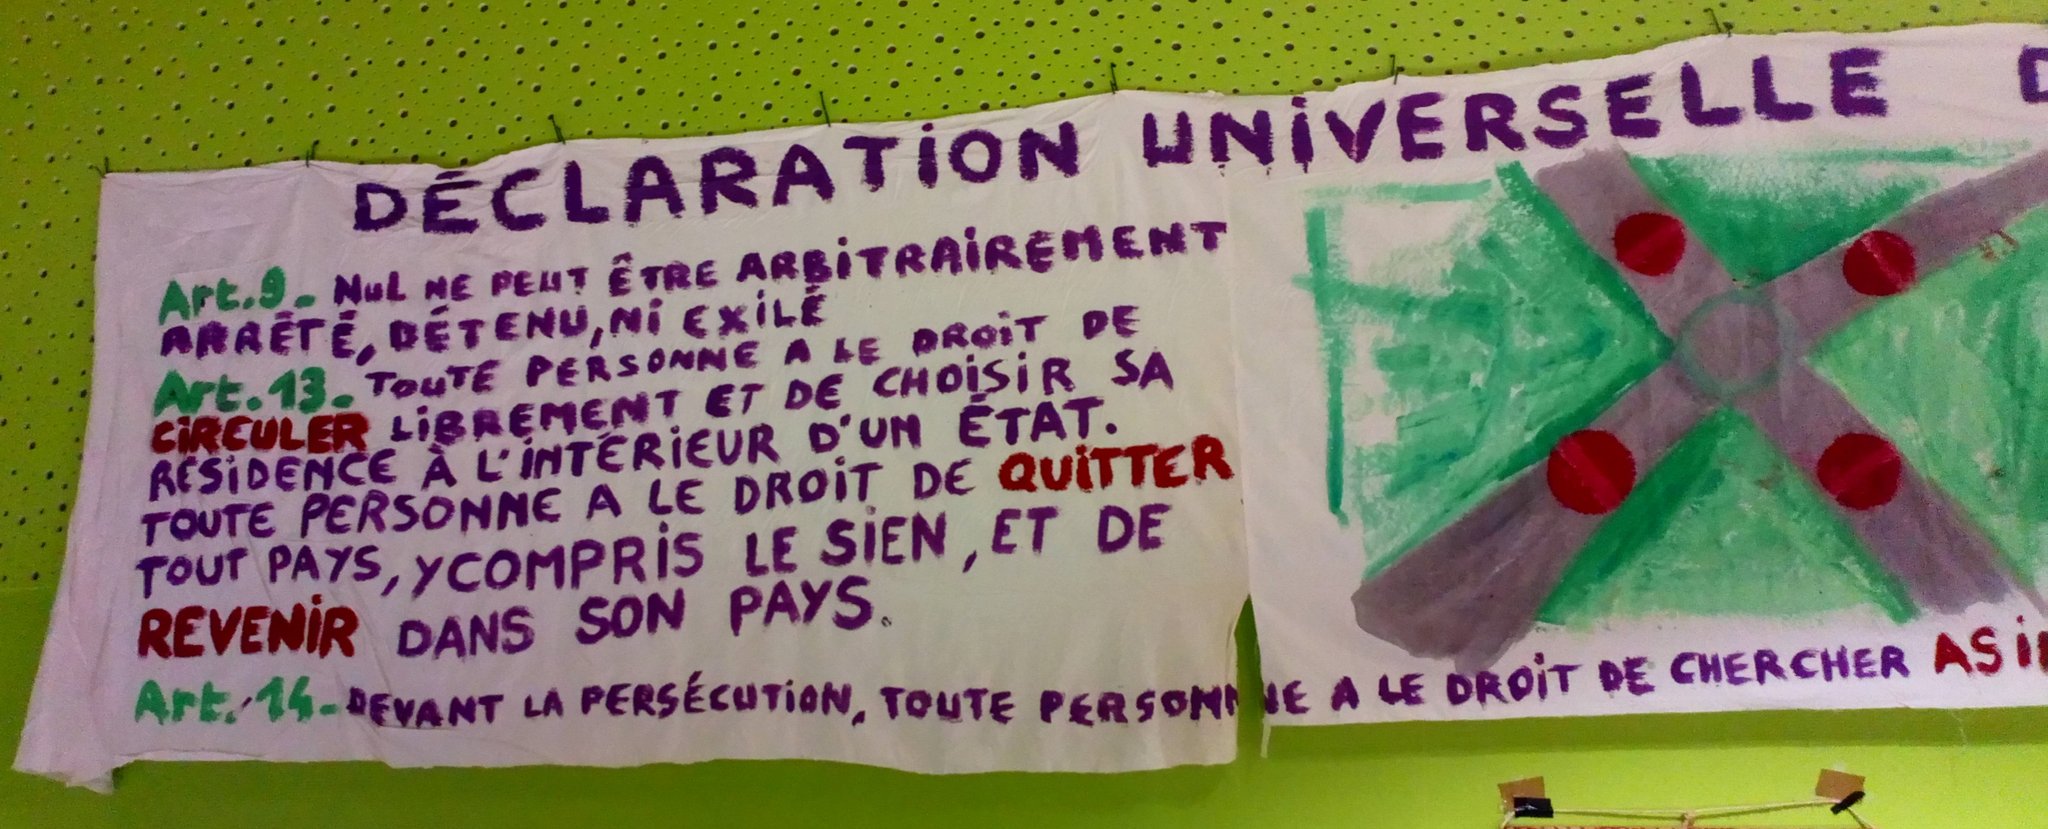 DÉCLARATION UNIVERSELLE D
Art.9. NUL NE PEUT ÊTRE ARBITRAIREMENT
ARRÊTÉ, DÉTENU, NI EXILÉ
Art.13. TOUTE PERSONNE A LE DROIT DE
CIRCULER LIBREMENT ET DE CHOISIR SA
RÉSIDENCE À L'INTÉRIEUR D'UN ÉTAT.
TOUTE PERSONNE A LE DROIT DE QUITTER
TOUT PAYS, Y COMPRIS LE SIEN, ET DE
REVENIR DANS SON PAYS.
Art. 14. DEVANT LA PERSÉCUTION, TOUTE PERSONNE A LE DROIT DE CHERCHER ASI